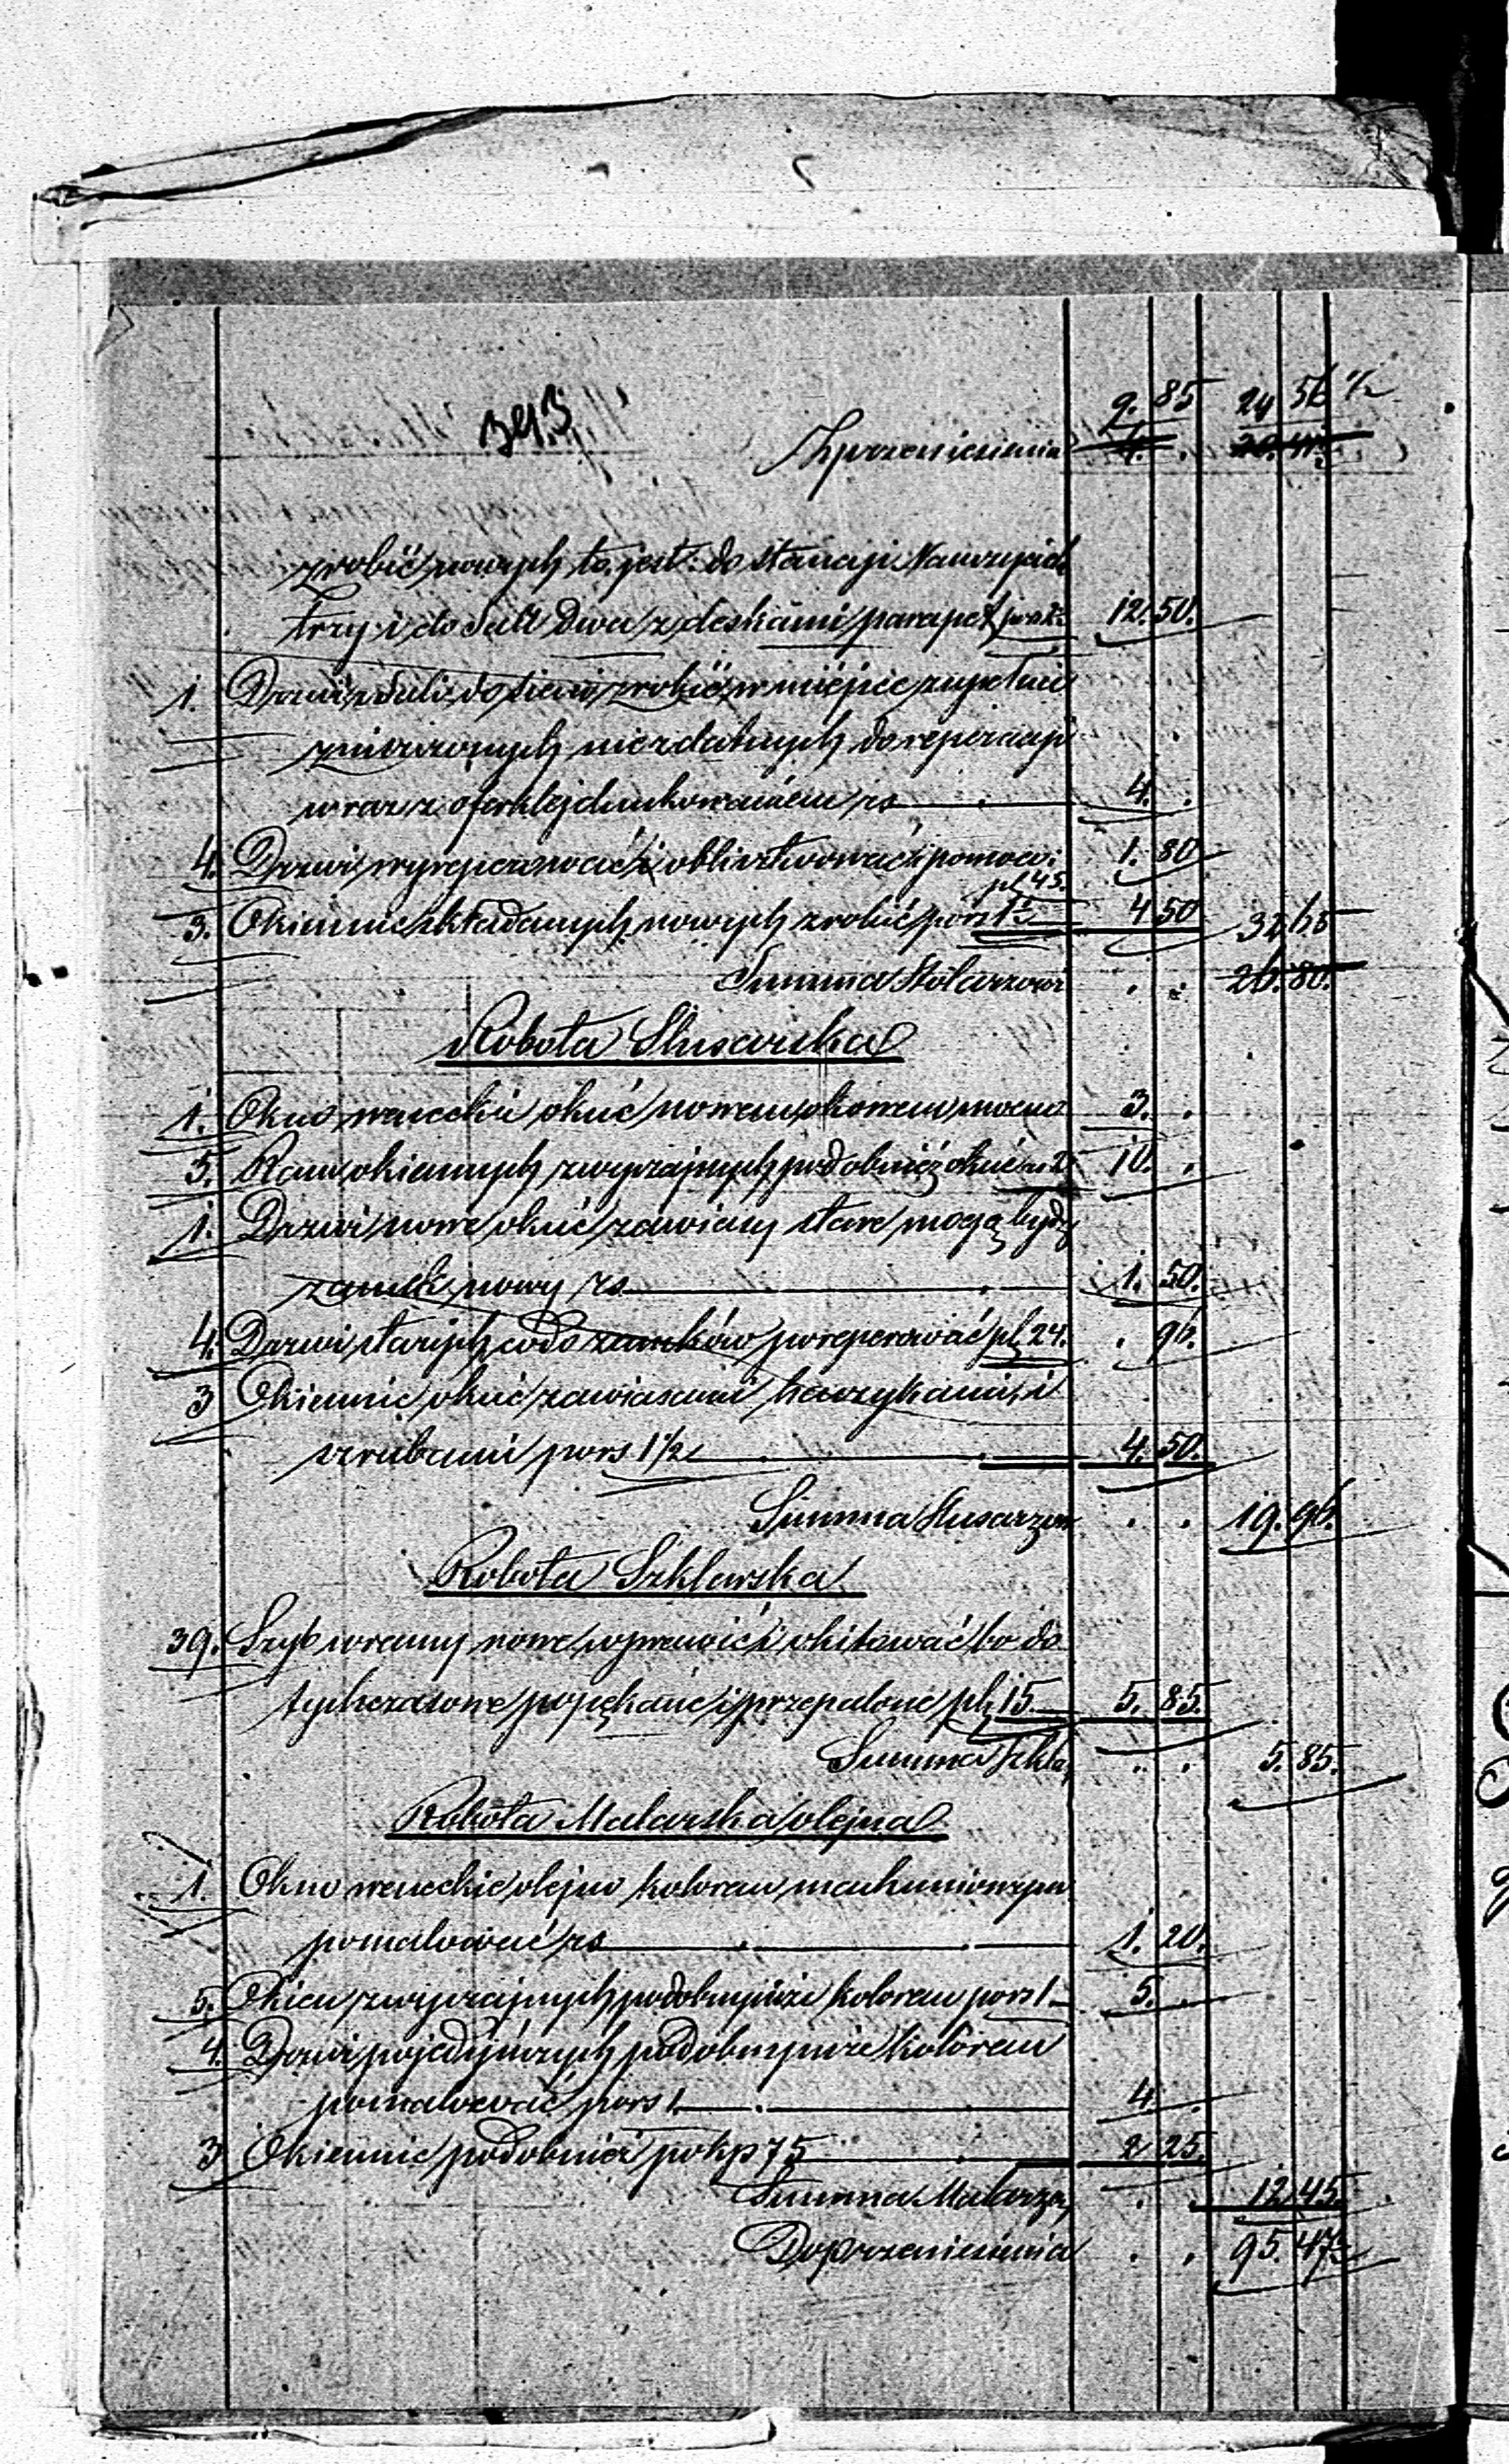 9. 85 24 56 ½
Z przeniesienia 4. .
zrobić nowych to jest: do stancyi Nauczyciela
trzy i do Sali dwa z deskami parapet po rs 2½ 12. 50.
1. Drzwi z Sali do sieni zrobić w miejsce zupełnie
zniszczonych niezdatnych do reperacyi
wraz z oferklejdunkowaniem rs 4. .
4. Drzwi wyreperować i pomocu: 1. 80
pk 45.
3. Okiennic składanych nowych zrobić po rs 1½ 4 50 32 65
Summa Stolarzowi . . 26. 80.
Robota Slusarska
1. Okno weneckie okuć nowem okowem mocno 3. .
5. Ram okiennych zwyczajnych podobnież okuć rs 2 10. .
1. Drzwi nowe okuć zawiasy stare mogą bydź
zamek nowy rs 1. 50.
4. Drzwi starych co do zamków poreperować pk 24. . 96.
3 Okiennic okuć zawiasami haczykami i
szrubami po rs 1½ 4. 50.
Summa Slusarzow . . 19. 96.
Robota Szklarska
39. Szyb w ramy nowe wprawić i okitować bo do
tychczasowe popękane i przepalone pk 15 5. 85.
Summa Szkla . . 5. 85.
Robota Malarska olejna
1. Okno weneckie olejno kolorem machuniowym
pomalować rs 1. 20.
5. Okien zwyczajnych podobnymże kolorem po rs 1 5. .
4. Drzwi pojedyńczych podobnymże kolorem
pomalować po rs 1 4 .
3 Okiennic podobnież po kp 75 2 25.
Summa Malarzow . . 12. 45.
Do przeniesienia . . 95. 47½